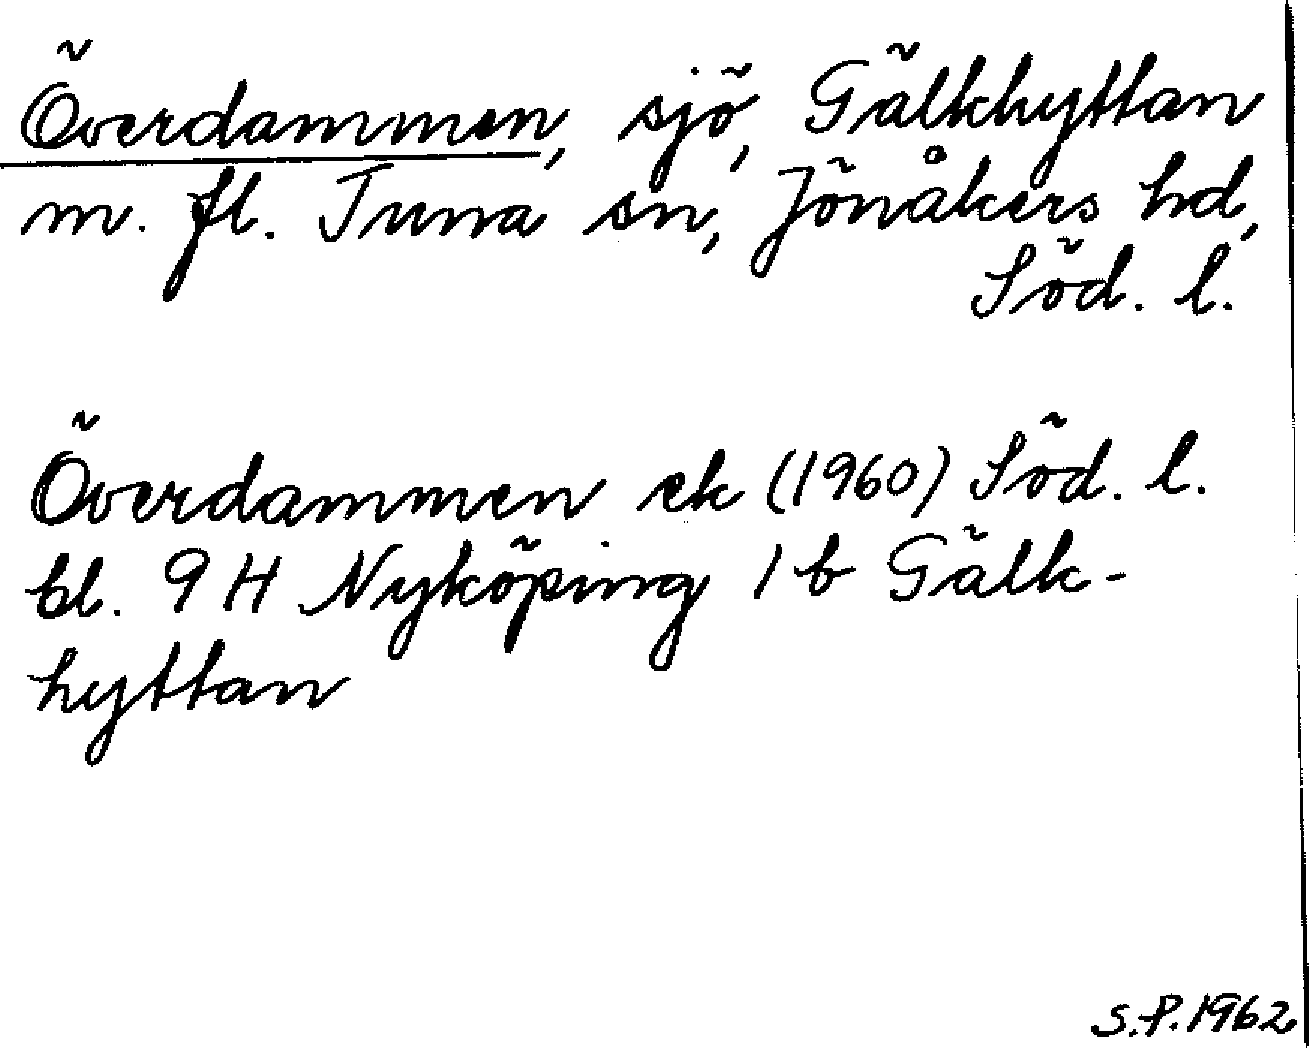 Överdammen, sjö, Gälkhyttan
m. fl. Tuna sn, Jönåkers hd,
Söd. l.
Överdammen ek (1960) Söd. l.
bl. 9 H Nyköping 1 b Gälk-
hyttan
S.P. 1962